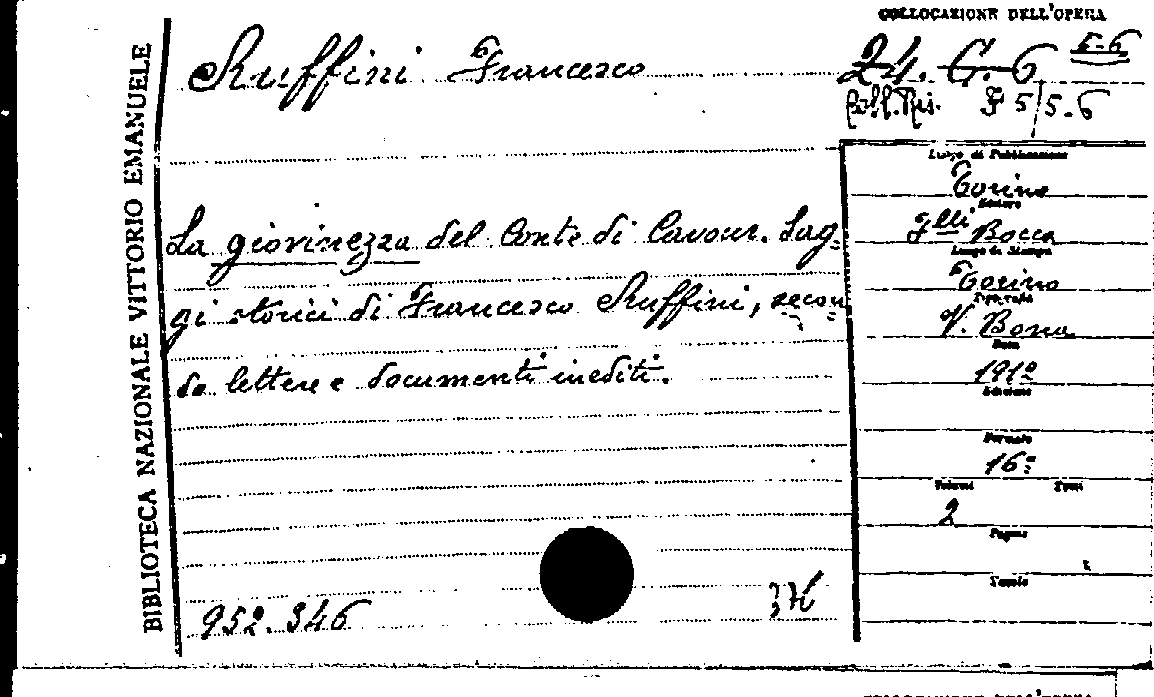 COLLOCAZIONE DELL'OPERA
Ruffini Francesco
24. G. 6 5-6
Coll. Ris. F 5/5-6
BIBLIOTECA NAZIONALE VITTORIO EMANUELE
La giovinezza del Conte di Cavour. Sag-
gi storici di Francesco Ruffini, secon
do lettere e documenti inediti.
Luogo di Pubblicazione
Torino
Editore
Flli Bocca
Luogo di Stampa
Torino
Tipografia
V. Bona
Data
1912
Edizione
Formato
16°
Volumi Tomi
2
Pagine
Tavole
952.346
376
COLLOCAZIONE DELL'OPERA